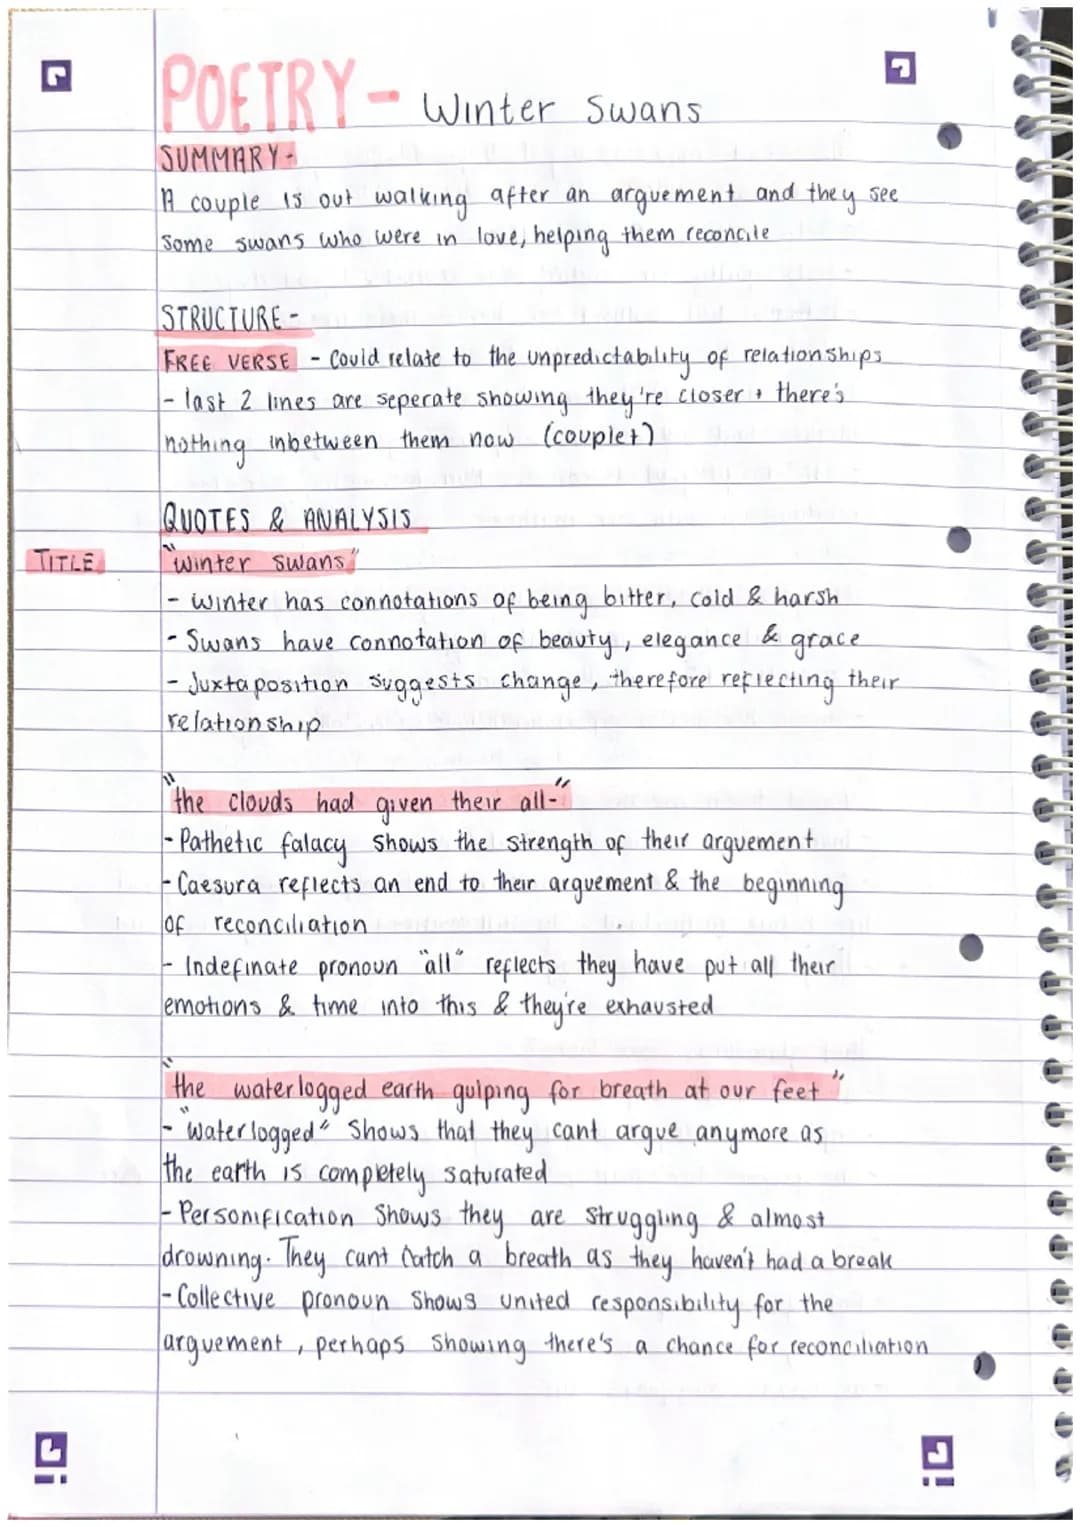 POETRY - Winter Swans
SUMMARY-
A couple is out walking after an arguement and they see
some swans who were in love, helping them reconcile
STRUCTURE -
FREE VERSE - Could relate to the unpredictability of relationships
- last 2 lines are seperate showing they're closer + there's
nothing inbetween them now (couplet)
QUOTES & ANALYSIS
TITLE "winter swans"
- Winter has connotations of being bitter, cold & harsh
- Swans have connotation of beauty, elegance & grace
- Juxtaposition suggests change, therefore reflecting their
relationship
"the clouds had given their all-"
- Pathetic falacy shows the strength of their arguement
- Caesura reflects an end to their arguement & the beginning
of reconciliation
- Indefinate pronoun "all" reflects they have put all their
emotions & time into this & they're exhausted
"the waterlogged earth gulping for breath at our feet"
- "Waterlogged" Shows that they cant argue anymore as
the earth is completely saturated
- Personification shows they are struggling & almost
drowning. They cant catch a breath as they haven't had a break
- Collective pronoun shows united responsibility for the
arguement, perhaps showing there's a chance for reconciliation